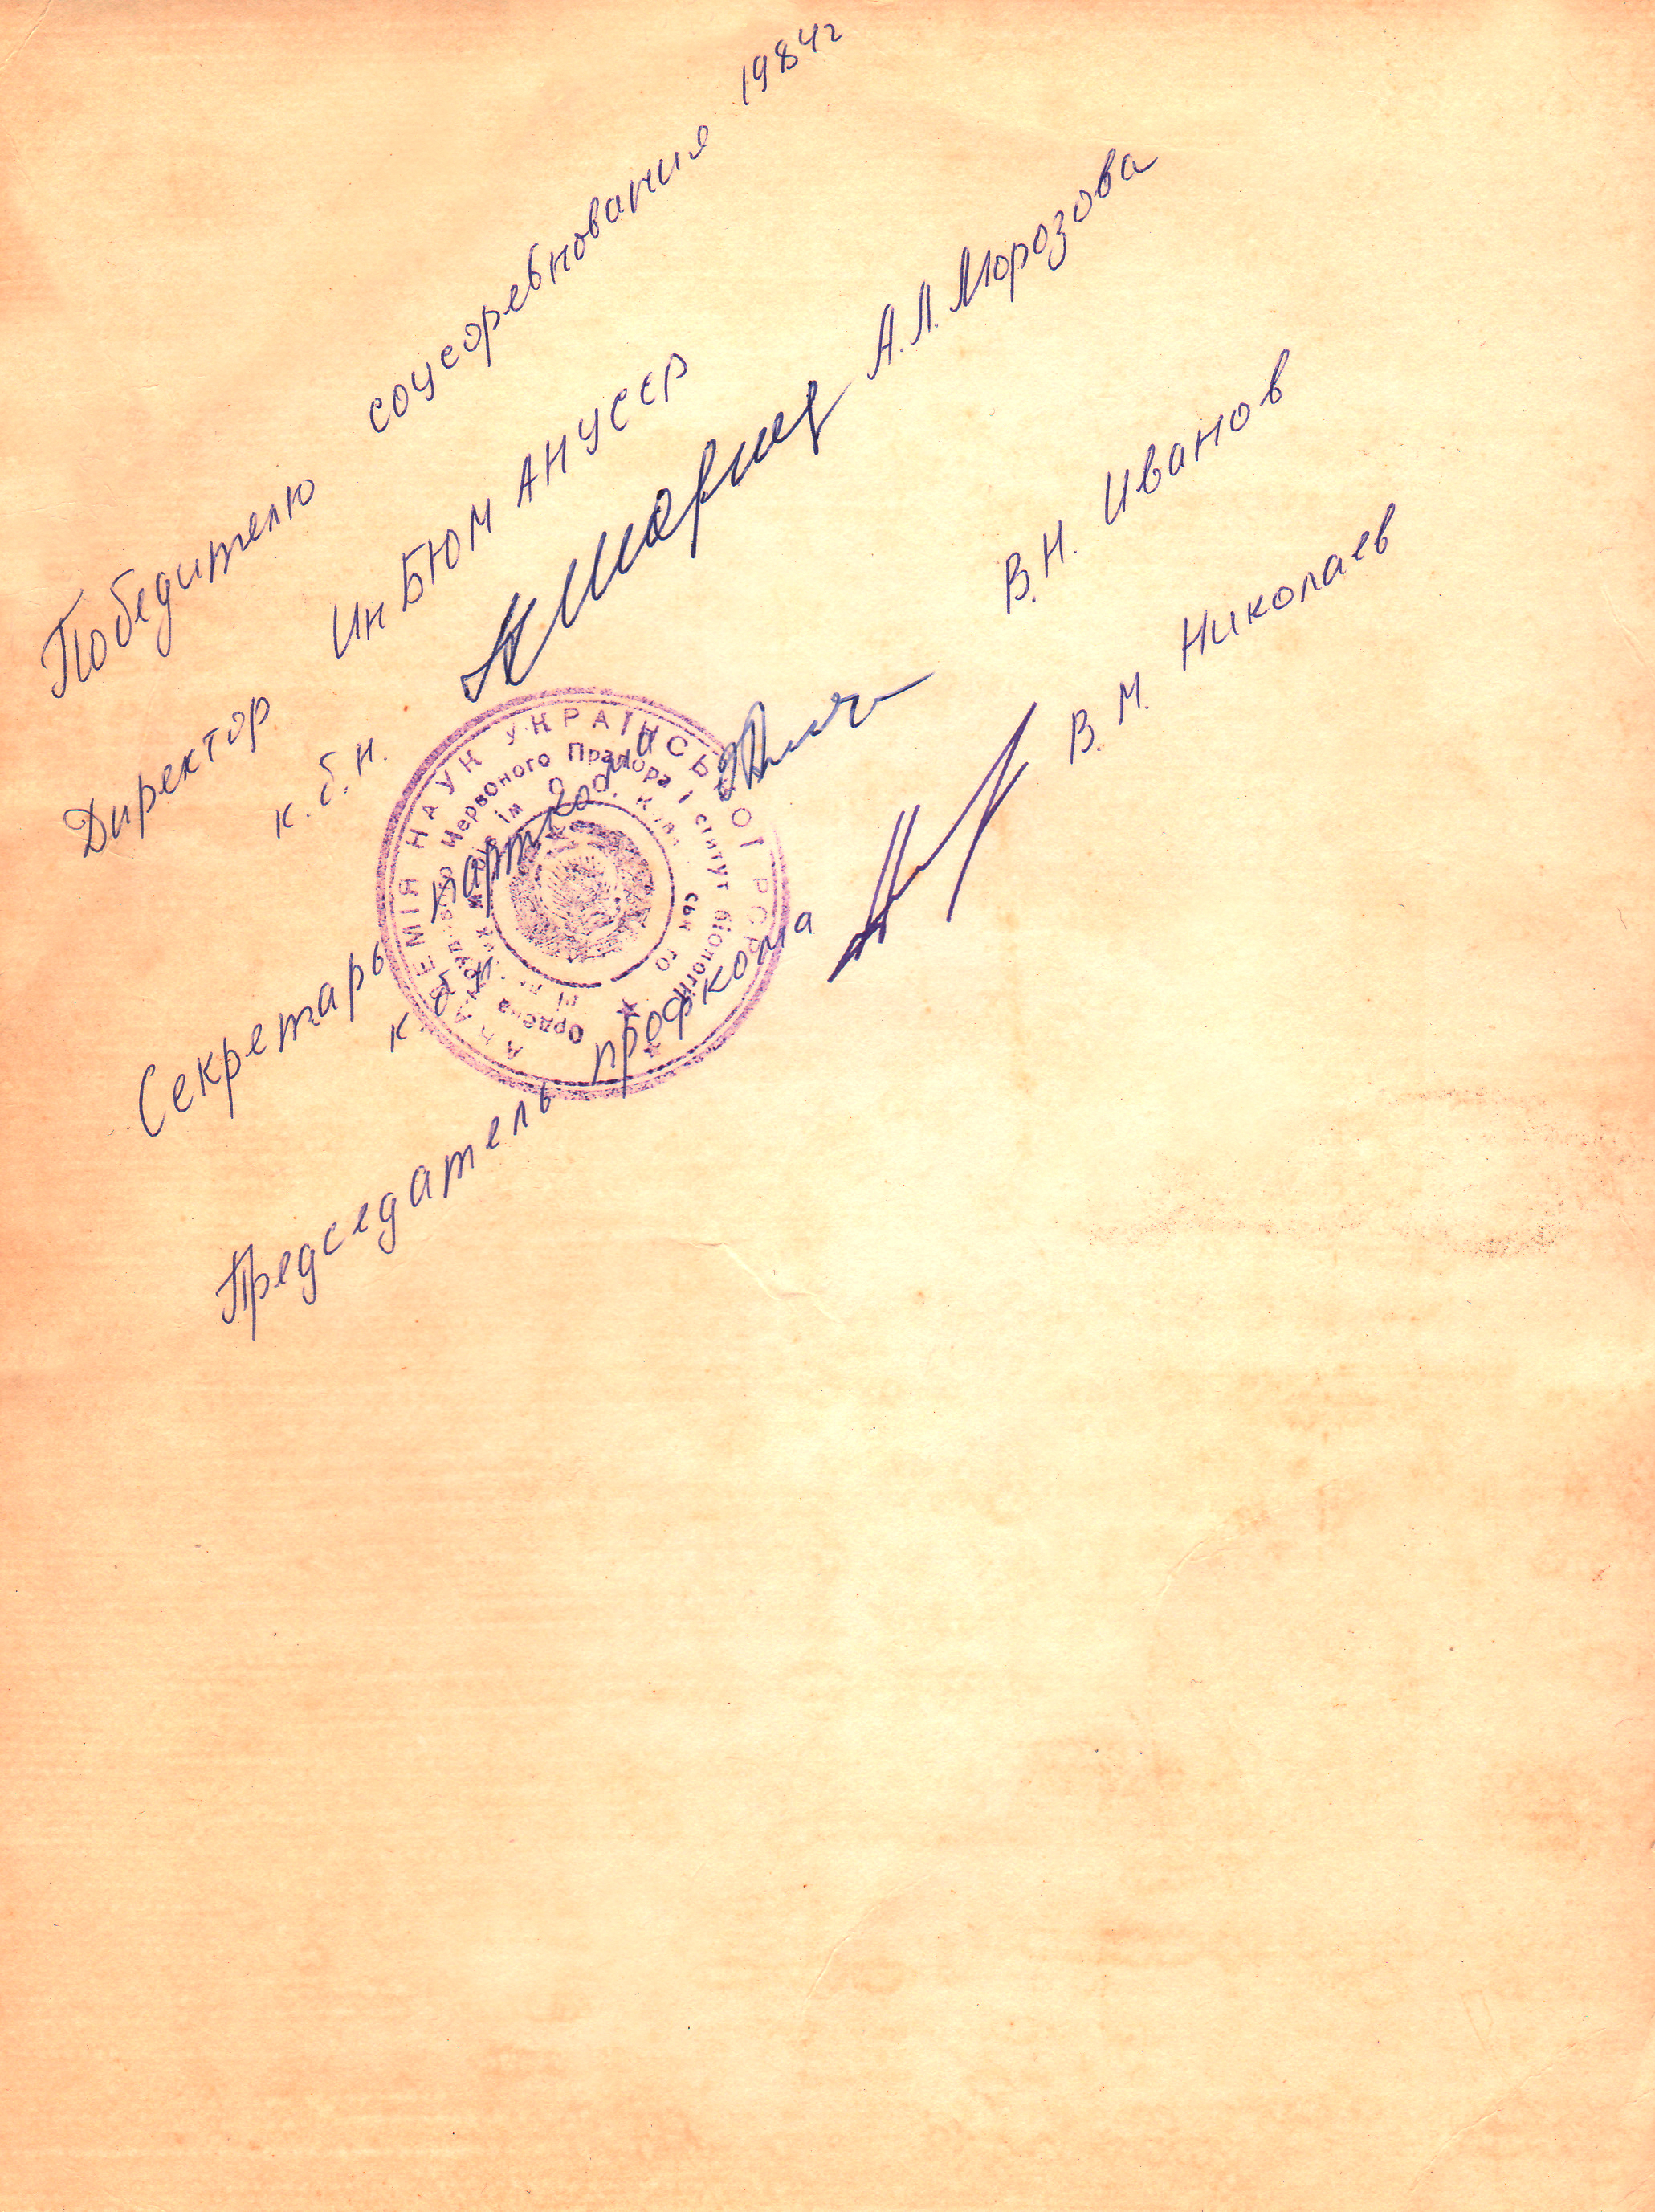 Победителю соцсоревнования 1984г
Директор ИнБЮМ АН УССР
к.б.н. А.Л. Морозова
Секретарь парткома
к.б.н. В.Н. Иванов
Председатель профкома В.М. Николаев
АКАДЕМІЯ НАУК УКРАЇНСЬКОЇ РСР
Ордена Трудового Червоного Прапора Інститут біології